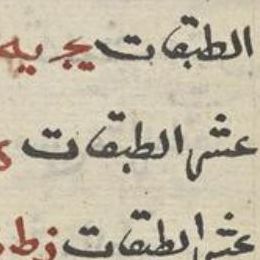 الطبقات يجريه
عشر الطبقات
عشر الطبقات